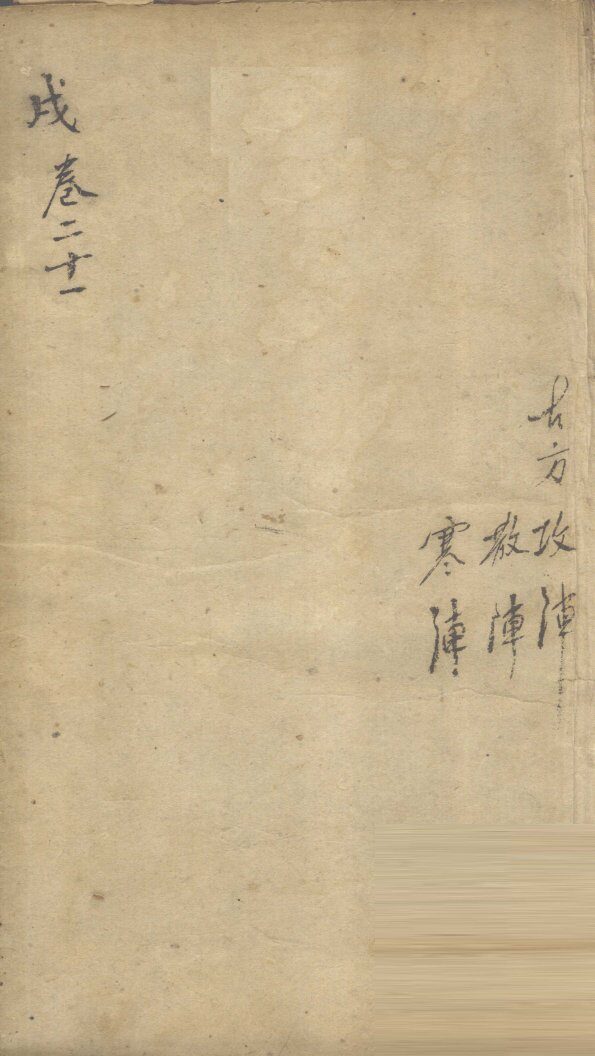 古方攻陣
散陣
寒陣
戌 卷二十一